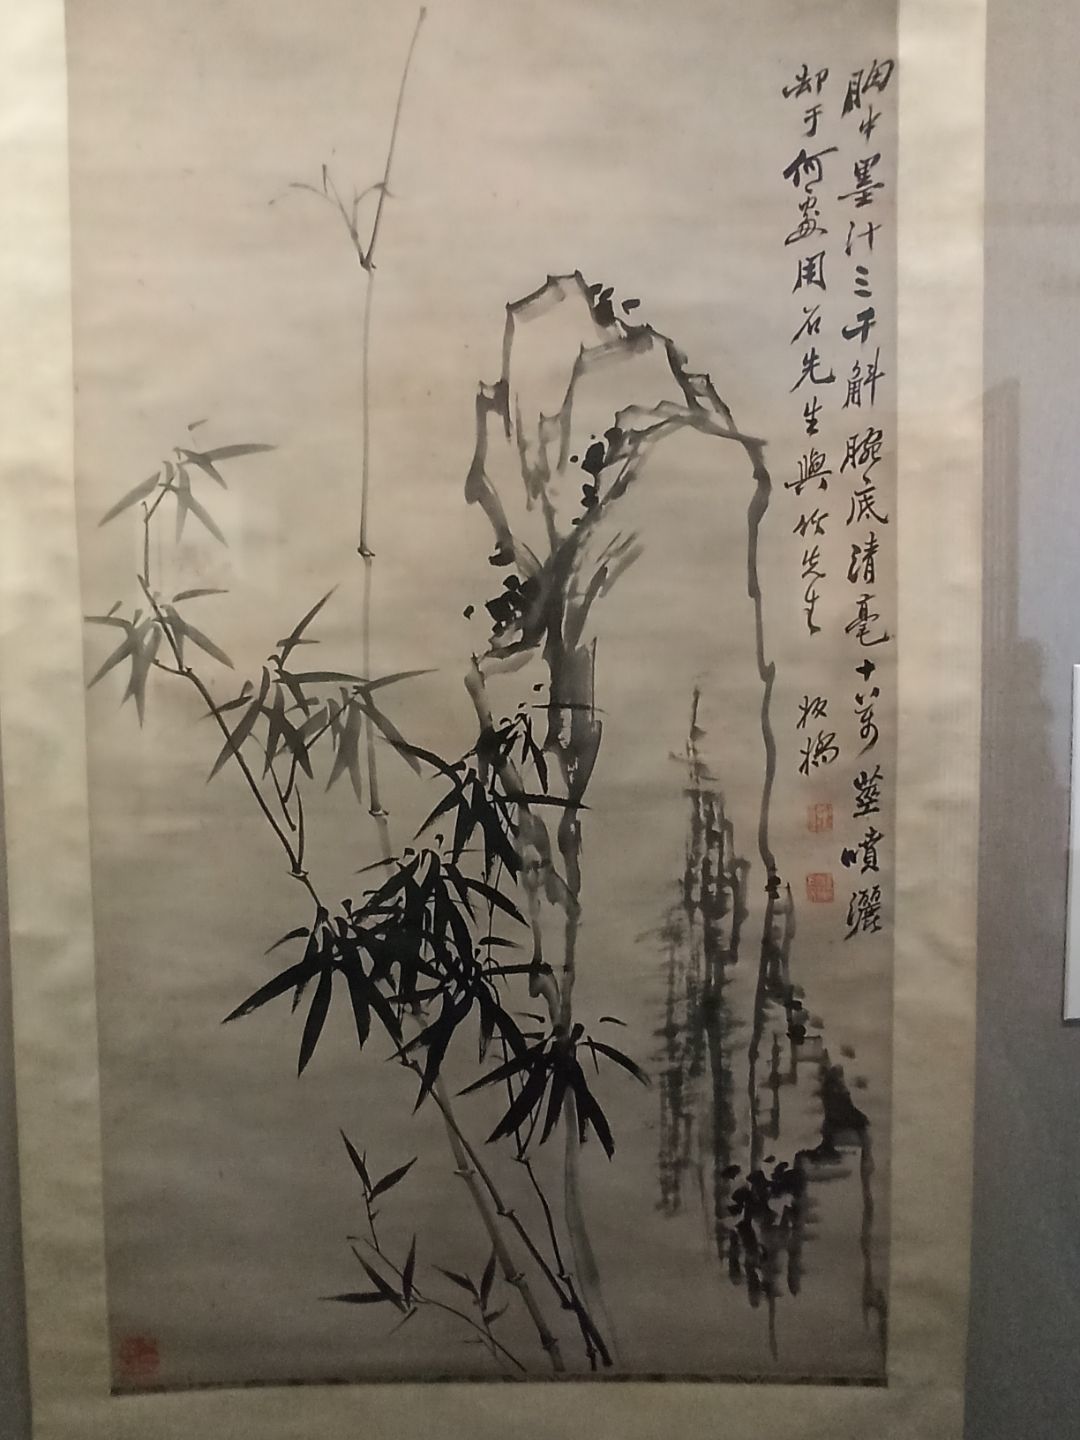 胸中墨汁三千斛腕底清毫十万茎噴灑
却于何處用石先生與竹先生
板橋